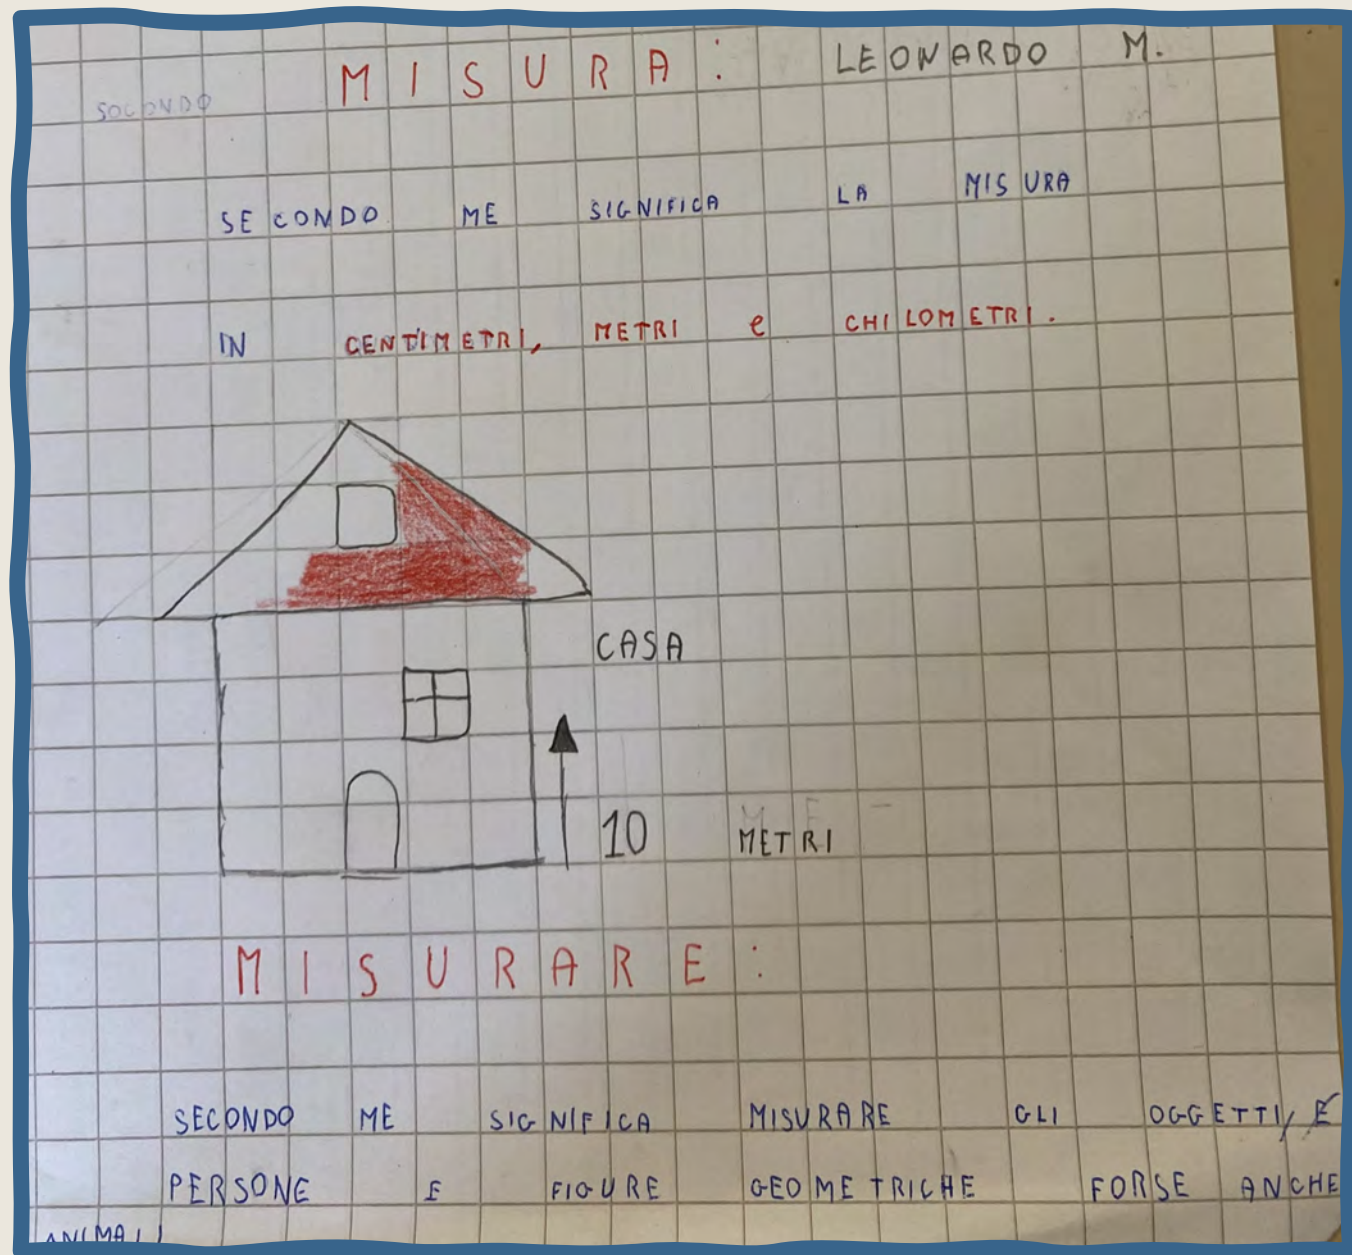 MISURA: LEONARDO M.
SOCONDO
SECONDO ME SIGNIFICA LA MISURA
IN CENTIMETRI, METRI e CHILOMETRI.
CASA
10 METRI
MISURARE:
SECONDO ME SIGNIFICA MISURARE GLI OGGETTI, E
PERSONE E FIGURE GEOMETRICHE FORSE ANCHE
ANIMALI